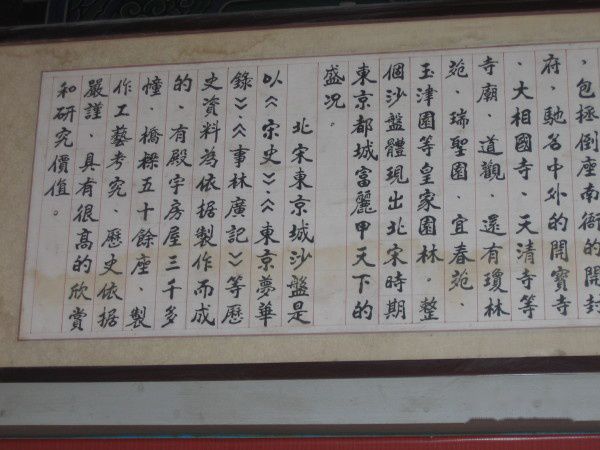 、包拯倒座南衙的開封
府，馳名中外的開寶寺
、大相國寺、天清寺等
寺廟、道觀、還有瓊林
苑、瑞聖園、宜春苑、
玉津園等皇家園林。整
個沙盤體現出北宋時期
東京都城富麗甲天下的
盛况。
北宋東京城沙盤是
以《宋史》《東京夢華
錄》《事林廣記》等歷
史資料為依据製作而成
的、有殿宇房屋三千多
幢、橋樑五十餘座、製
作工藝考究、歷史依据
嚴謹、具有很高的欣賞
和研究價值。